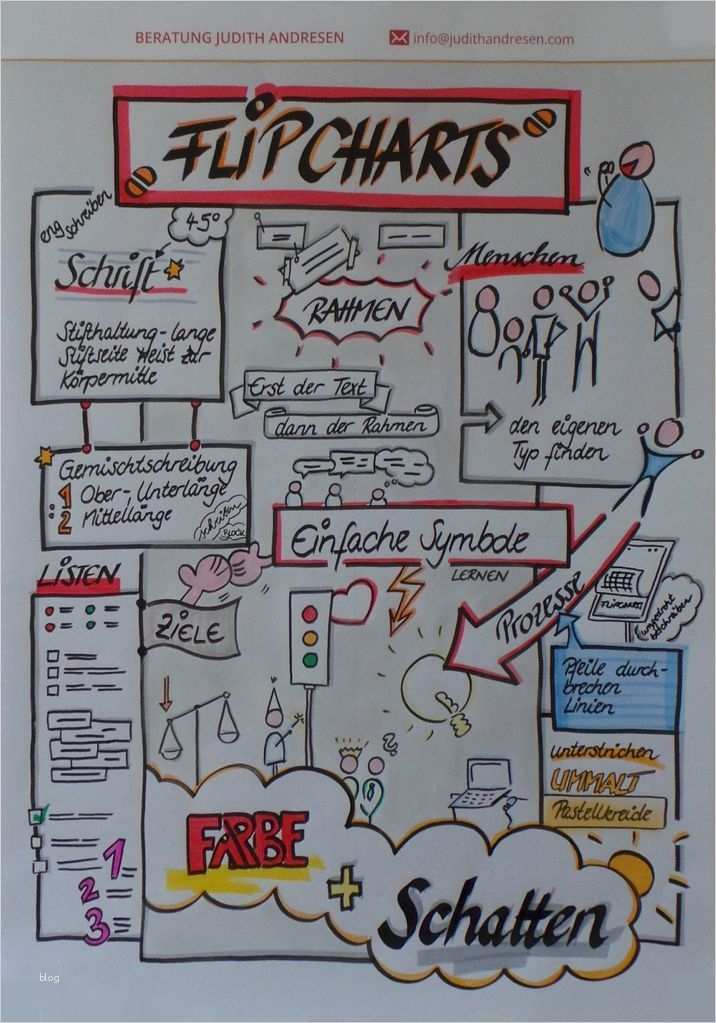 BERATUNG JUDITH ANDRESEN
info@judithandresen.com
FLiPCHARTS
eng
schreiben
45°
Schrift
Stifthaltung-lange
Stiftseite weist zur
Körpermitte
RAHMEN
Menschen
Erst der Text
dann der Rahmen
den eigenen
Typ finden
Gemischtschreibung
1 Ober-, Unterlänge
2 Mittellänge
schreiben
BLOCK
Einfache Symbole
LERNEN
LISTEN
ZIELE
Prozesse
FLIPCHARTS
Pfeile durch-
brechen
Linien
unterstrichen
UMMALT
Pastellkreide
FARBE
+
Schatten
1
2
3
blog